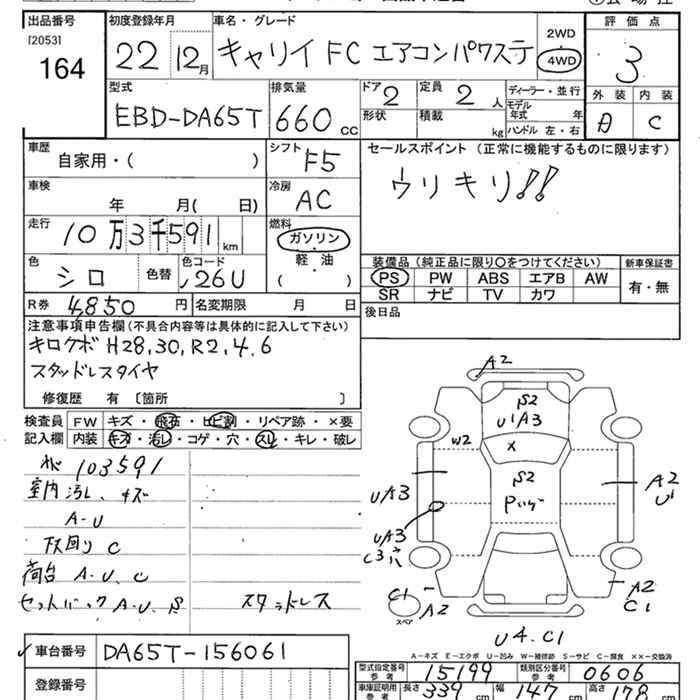 出品番号 初度登録年月 車名・グレード 評価点
[2053] 2WD
164 22 12月 キャリイ FC エアコンパワステ 4WD 3
型式 排気量 ドア 定員 ディーラー・並行 外装 内装
EBD-DA65T 660 CC 2 2 人 モデル年式 年 C
形状 積載 kg ハンドル 左・右
車歴 シフト セールスポイント (正常に機能するものに限ります)
自家用・( ) F5 ウリキリ!!
車検 冷房
年 月( 日) AC
走行 燃料
10万3千591 km ガソリン
色 色コード 軽・油 装備品 (純正品に限り○をつけてください) 新車保証書
シロ 色替 26U ( ) PS PW ABS エアB AW 有・無
SR ナビ TV カワ
R券 4,850 円 名変期限 月 日 後日品
注意事項申告欄(不具合内容等は具体的に記入して下さい)
キロクボ H28,30,R2,4.6
スタッドレスタイヤ
修復歴 有 〔箇所 〕
検査員 FW キズ・飛石・ヒビ割・リペア跡・×要
記入欄 内装 キズ・汚レ・コゲ・穴・スレ・キレ・破レ
103591
室内汚レ、キズ
A-U
下回り C
荷台 A.U.C
セットバック A.U.S スタッドレス
A2
S2
U1A3
W2 X
S2
UA3 A2
U1
UA3
C1 A2 スペア A2
C1
U4.C1
A-キズ E-エクボ U-凹み W-補修跡 S-サビ C-腐食 ××-交換済
車台番号 DA65T-156061
型式指定番号 参考 15199 類別区分番号 参考 0606
登録番号
車庫証明用 参考 長さ 339 cm 幅 147 cm 高さ 178 cm